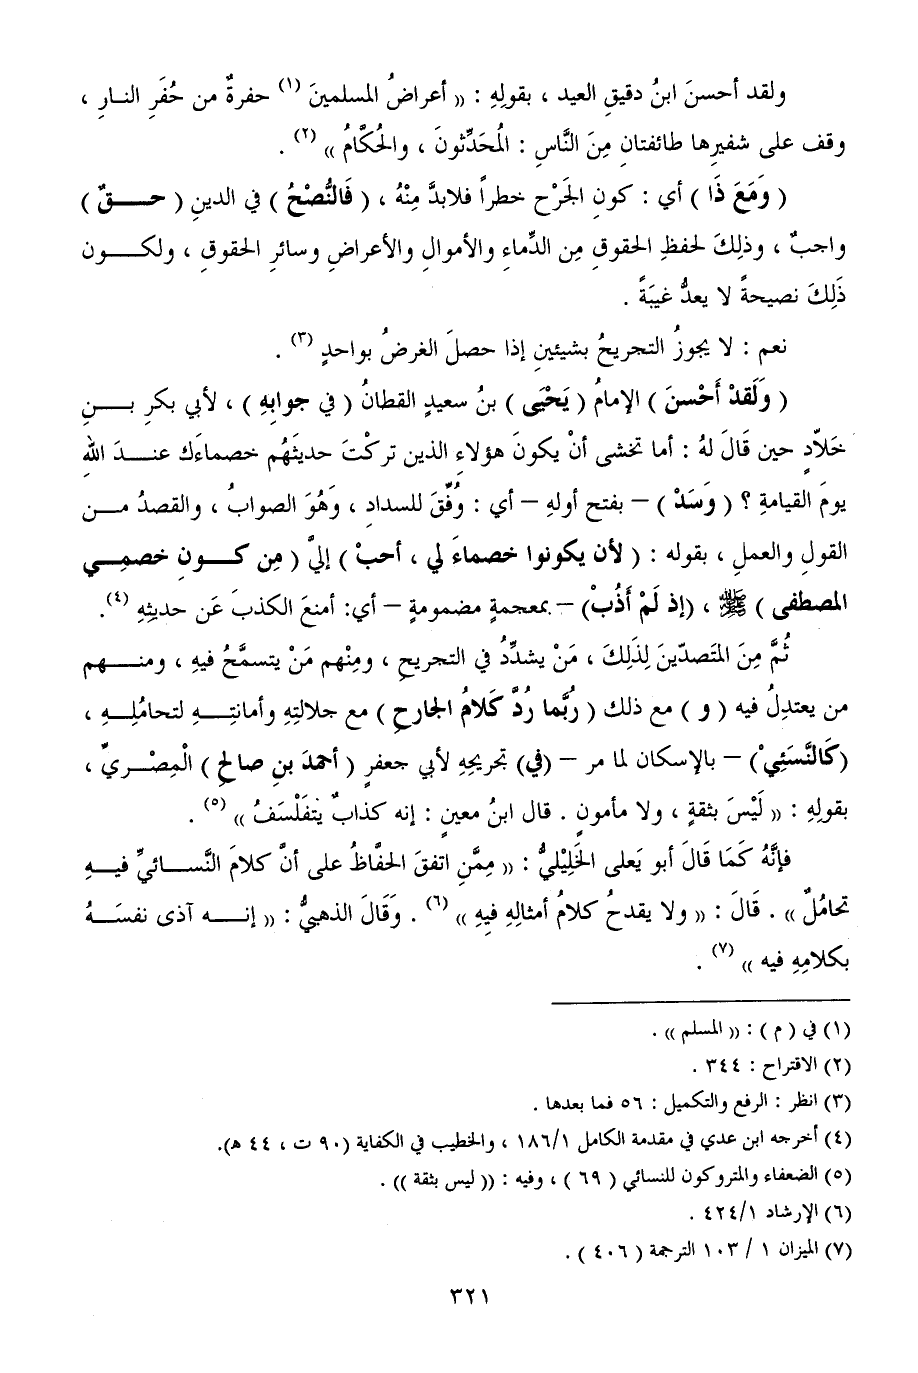 ولقد أحسنَ ابنُ دقيقِ العيد ، بقولِهِ : (( أعراضُ المسلمينَ (١) حفرةٌ من حُفَرِ النـارِ ،
وقف على شفيرِها طائفتانِ مِنَ النَّاسِ : المُحَدِّثونَ ، والحُكَّامُ )) (٢) .
( وَمَعَ ذَا ) أي : كونِ الجَرْحِ خطراً فلابدَّ مِنْهُ ، ( فَالنُّصْحُ ) في الدينِ ( حـــقٌ )
واجبٌ ، وذلِكَ لحفظِ الحقوقِ مِن الدِّماءِ والأموالِ والأعراضِ وسائرِ الحقوقِ ، ولكـــون
ذَلِكَ نصيحةً لا يعدُّ غيبَةً .
نعم : لا يجوزُ التجريحُ بشيئينِ إذا حصلَ الغرضُ بواحدٍ (٣) .
( وَلَقدْ أَحْسنَ ) الإمامُ ( يَحْيَى ) بنُ سعيدٍ القطانُ ( في جوابِهِ ) ، لأبي بكرِ بـــنِ
خَلاّدٍ حين قَالَ لهُ : أما تخشى أنْ يكونَ هؤلاءِ الذين تركْتَ حديثَهُم خصماءَك عنــدَ اللهِ
يومَ القيامةِ ؟ ( وَسَدْ ) – بفتح أولهِ – أي : وُفِّقَ للسدادِ ، وَهُوَ الصوابُ ، والقصدُ مـــن
القولِ والعملِ ، بقوله : ( لأن يكونوا خصماءَ لي ، أحبْ ) إليَّ ( مِن كـــونِ خصمِـــي
المصطفى ) ﷺ ، (إذ لَمْ أَذُبْ) – بمعجمةٍ مضمومةٍ – أي: أمنعَ الكذبَ عَن حديثِهِ (٤).
ثُمَّ مِنَ المتَصدّينَ لِذَلِكَ ، مَنْ يشدِّدُ في التجريحِ ، ومِنْهم مَنْ يتسمَّحُ فيهِ ، ومنـــهم
من يعتدِلُ فيه ( و ) مع ذلك ( رُبَّما رُدَّ كَلامُ الجارحِ ) مع جلالتِهِ وأمانتِـــهِ لتحامُلِـــهِ ،
(كَالنَّسَئِيْ) – بالإسكان لما مر – (في) تجريحِهِ لأبي جعفرٍ ( أحمدَ بنِ صالحٍ ) الْمِصْـريِّ ،
بقولِهِ : (( لَيْسَ بثقةٍ ، ولا مأمونٍ . قال ابنُ معينٍ : إنه كذابٌ يتفَلْسَفُ )) (٥) .
فإنَّهُ كَمَا قَالَ أبو يَعلى الخَلِيْليُّ : (( مِمَّنِ اتفقَ الحفَّاظُ على أنَّ كلامَ النَّســائيِّ فيـــهِ
تحامُلٌ )) . قَالَ : (( ولا يقدحُ كلامُ أمثالِهِ فيهِ )) (٦) . وَقَالَ الذهبيُّ : (( إنـــه آذى نفسَـــهُ
بكلامِهِ فيه )) (٧) .
(١) في ( م ) : (( المسلم )) .
(٢) الاقتراح : ٣٤٤ .
(٣) انظر : الرفع والتكميل : ٥٦ فما بعدها .
(٤) أخرجه ابن عدي في مقدمة الكامل ١/١٨٦ ، والخطيب في الكفاية (٩٠ ت ، ٤٤ هـ).
(٥) الضعفاء والمتروكون للنسائي ( ٦٩ ) ، وفيه : (( ليس بثقة )) .
(٦) الإرشاد ١/٤٢٤ .
(٧) الميزان ١ / ١٠٣ الترجمة ( ٤٠٦ ) .
٣٢١